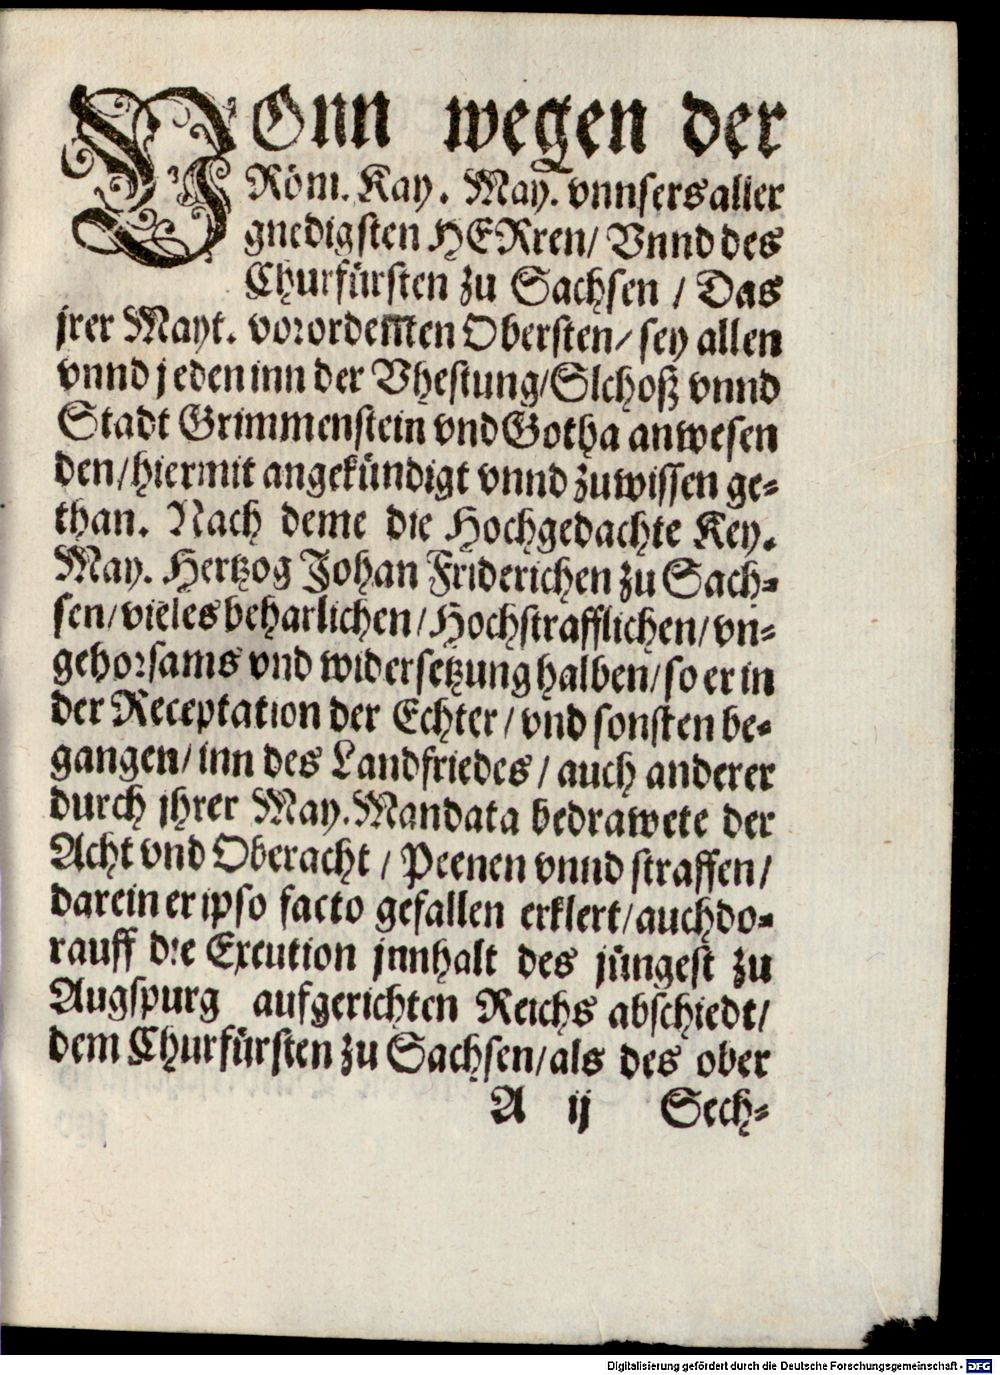 VOnn wegen der
Röm. Kay. May. vnnsers aller
gnedigsten HERren/ Vnnd des
Churfürsten zu Sachsen / Das
jrer Mayt. vorordenten Obersten/ sey allen
vnnd jeden inn der Vhestung/ Slchoß vnnd
Stadt Grimmenstein vnd Gotha anwesen
den/ hiermit angekündigt vnnd zuwissen ge-
than. Nach deme die Hochgedachte Key.
May. Hertzog Johan Friderichen zu Sach-
sen/ vieles beharlichen/ Hochstrafflichen/ vn-
gehorsams vnd widersetzung halben/ so er in
der Receptation der Echter / vnd sonsten be-
gangen/ inn des Landfriedes / auch anderer
durch jhrer May. Mandata bedrawete der
Acht vnd Oberacht / Peenen vnnd straffen/
darein er ipso facto gefallen erklert/ auch do-
rauff die Excution jnnhalt des jüngest zu
Augspurg aufgerichten Reichs abschiedt/
dem Churfürsten zu Sachsen/ als des ober
A ij Sech-
Digitalisierung gefördert durch die Deutsche Forschungsgemeinschaft - DFG